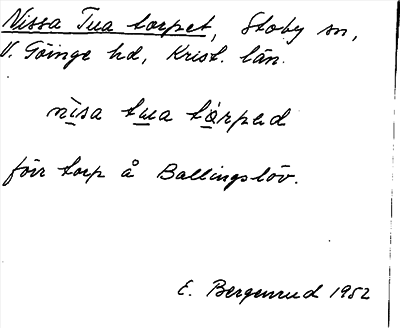 Nissa Tua torpet, Stoby sn,
V. Göinge hd, Krist. län.
nisa tua tårped
förr torp å Ballingslöv.
E. Bergenrud 1952